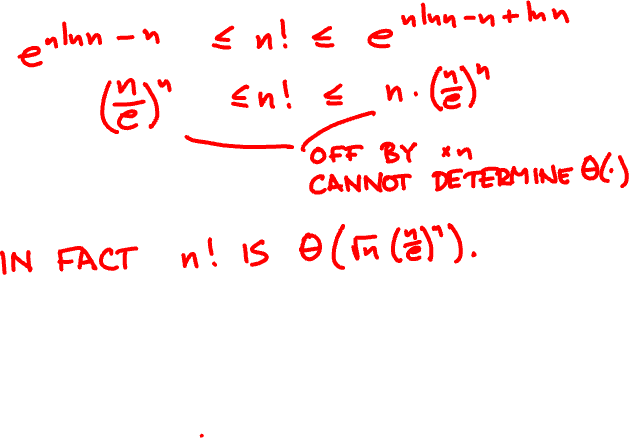 e^{n ln n - n} ≤ n! ≤ e^{n ln n - n + ln n}
(n/e)^n ≤ n! ≤ n · (n/e)^n
OFF BY *n
CANNOT DETERMINE Θ(·)
IN FACT n! IS Θ(√n (n/e)^n).